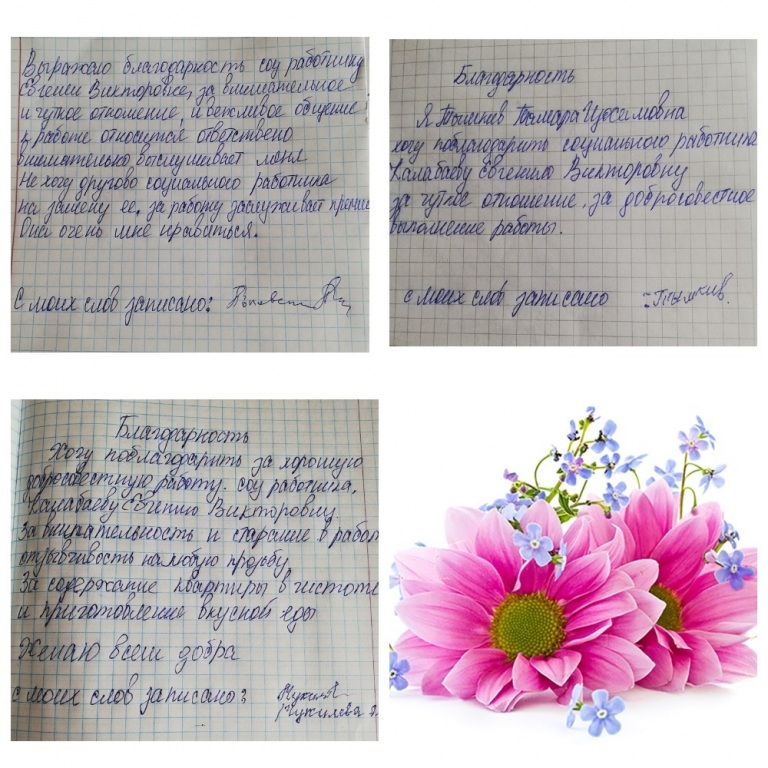 Выражаю благодарность соц работнику
Евгении Викторовне, за внимательное
и чуткое отношение, и вежливое общение!
к работе относится ответствено
внимательно выслушивает меня
Не хочу другово социального работника
на замену ее, за работу заслуживает премие
Она очень мне нравиться.
С моих слов записано:
Благодарность
Я Тамара
хочу поблагодарить социального работника
Калабаеву Евгению Викторовну
за чуткое отношение, за добросовестное
выполнение работы.
с моих слов записано
Благодарность
Хочу поблагодарить за хорошую
добросовестную работу. соц работника,
Калабаеву Евгению Викторовну
За внимательность и старание в работ
отзывчивость на любую просьбу.
За содержание квартиры в чистоте
и приготовление вкусной еды
Желаю всем добра
с моих слов записано: